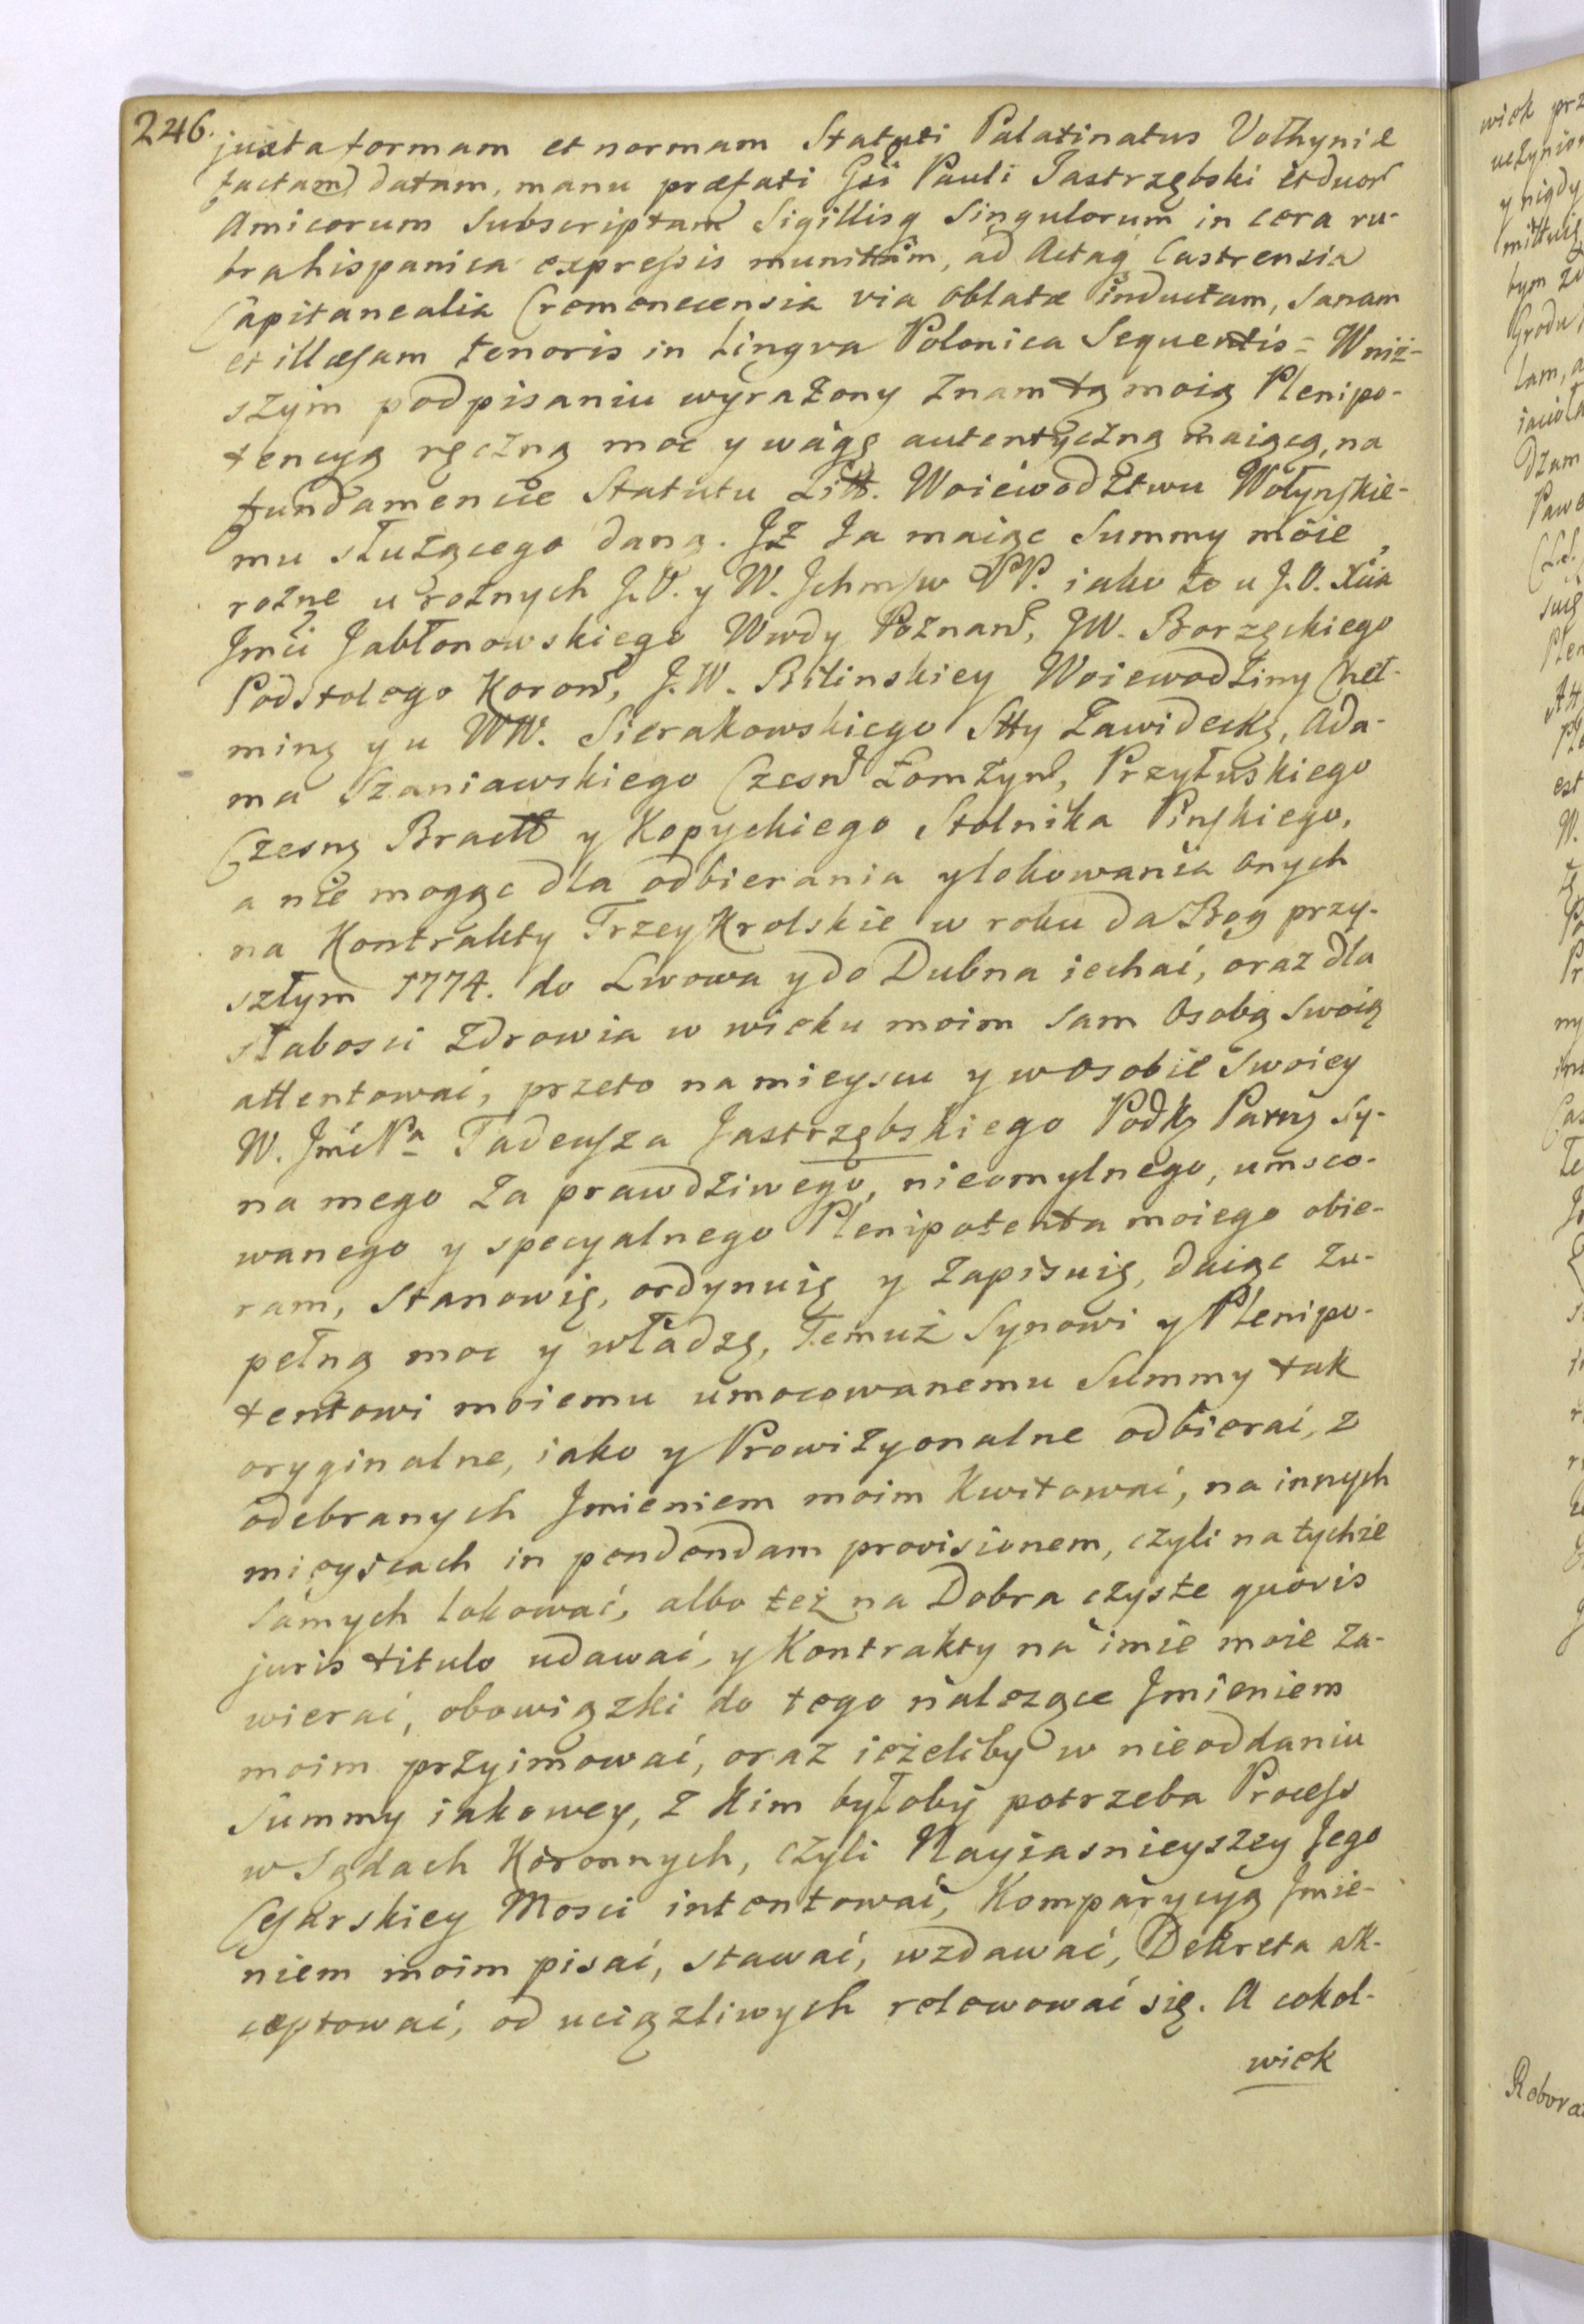 246.
juxta formam et normam Statuti Palatinatus Volhyniæ
factam datam, manu præfati Gsi Pauli Jastrzębski et duor
Amicorum Subscriptam Sigillisq Singulorum in cera ru-
bra hispanica expressis munitam, ad Actaq Castrensia
Capitanealia Cremenecensia via oblatæ inductam, Sanam
et illæsam tenoris in Lingva Polonica Sequentis = W niż-
szym podpisaniu wyrażony znam tą moią Plenipo-
tencyą ręczną moc y wagę autentyczną maiącą, na
fundamencie Statutu Litt. Woiewodztwu Wołynskie-
mu służącego daną. Jż Ja maiąc Summy moie
rożne u rożnych J.O. y W. Jchmsw PP. iako to u J.O. Xcia
Jmci Jabłonowskiego Wwdy Poznań, JW. Borzęckiego
Podstolego Koron, J.W. Bilinskiey Woiewodziny Cheł-
miną y u WW. Sierakowskiego Stty Zawideckg, Ada-
ma Szaniawskiego Czesn Łomżyn, Przyłuskiego
Czesng Bractt y Kopyckiego Stolnika Pinskiego,
a nie mogąc dla odbierania y lokowania onych
na Kontrakty Trzey Krolskie w roku da Bog przy-
szłym 1774. do Lwowa y do Dubna iechać, oraz dla
słabosci zdrowia w wieku moim sam Osobą swoią
attentować, przeto na mieyscu y w osobie Swoiey
W. Jmć Pa Tadeusza Jastrzębskiego Podkg Parng Sy-
na mego za prawdziwego, nieomylnego, umoco-
wanego y specyalnego Plenipotenta moiego obie-
ram, Stanowię, ordynuię y zapisuię, daiąc zu-
pełną moc y władzę, Temuż Synowi y Plenipo-
tentowi moiemu umocowanemu Summy tak
oryginalne, iako y Prowizyonalne odbierać, z
odebranych Jmieniem moim Kwitować, na innych
mieyscach in pendendam provisionem, czyli na tychże
Samych lokować, albo też na Dobra czyste quovis
juris titulo udawać, y Kontrakty na imie moie za-
wierać, obowiązki do tego należące Jmieniem
moim przyimować, oraz ieżeliby w nieoddaniu
Summy iakowey, z kim byłoby potrzeba Process
w Sądach Koronnych, czyli Nayiasnieyszey Jego
Cesarskiey Mosci intentować, Komparycyą Jmie-
niem moim pisać, stawać, wzdawać, Dekreta ak-
ceptować, od uciązliwych relewować się. A cokol-
wiek